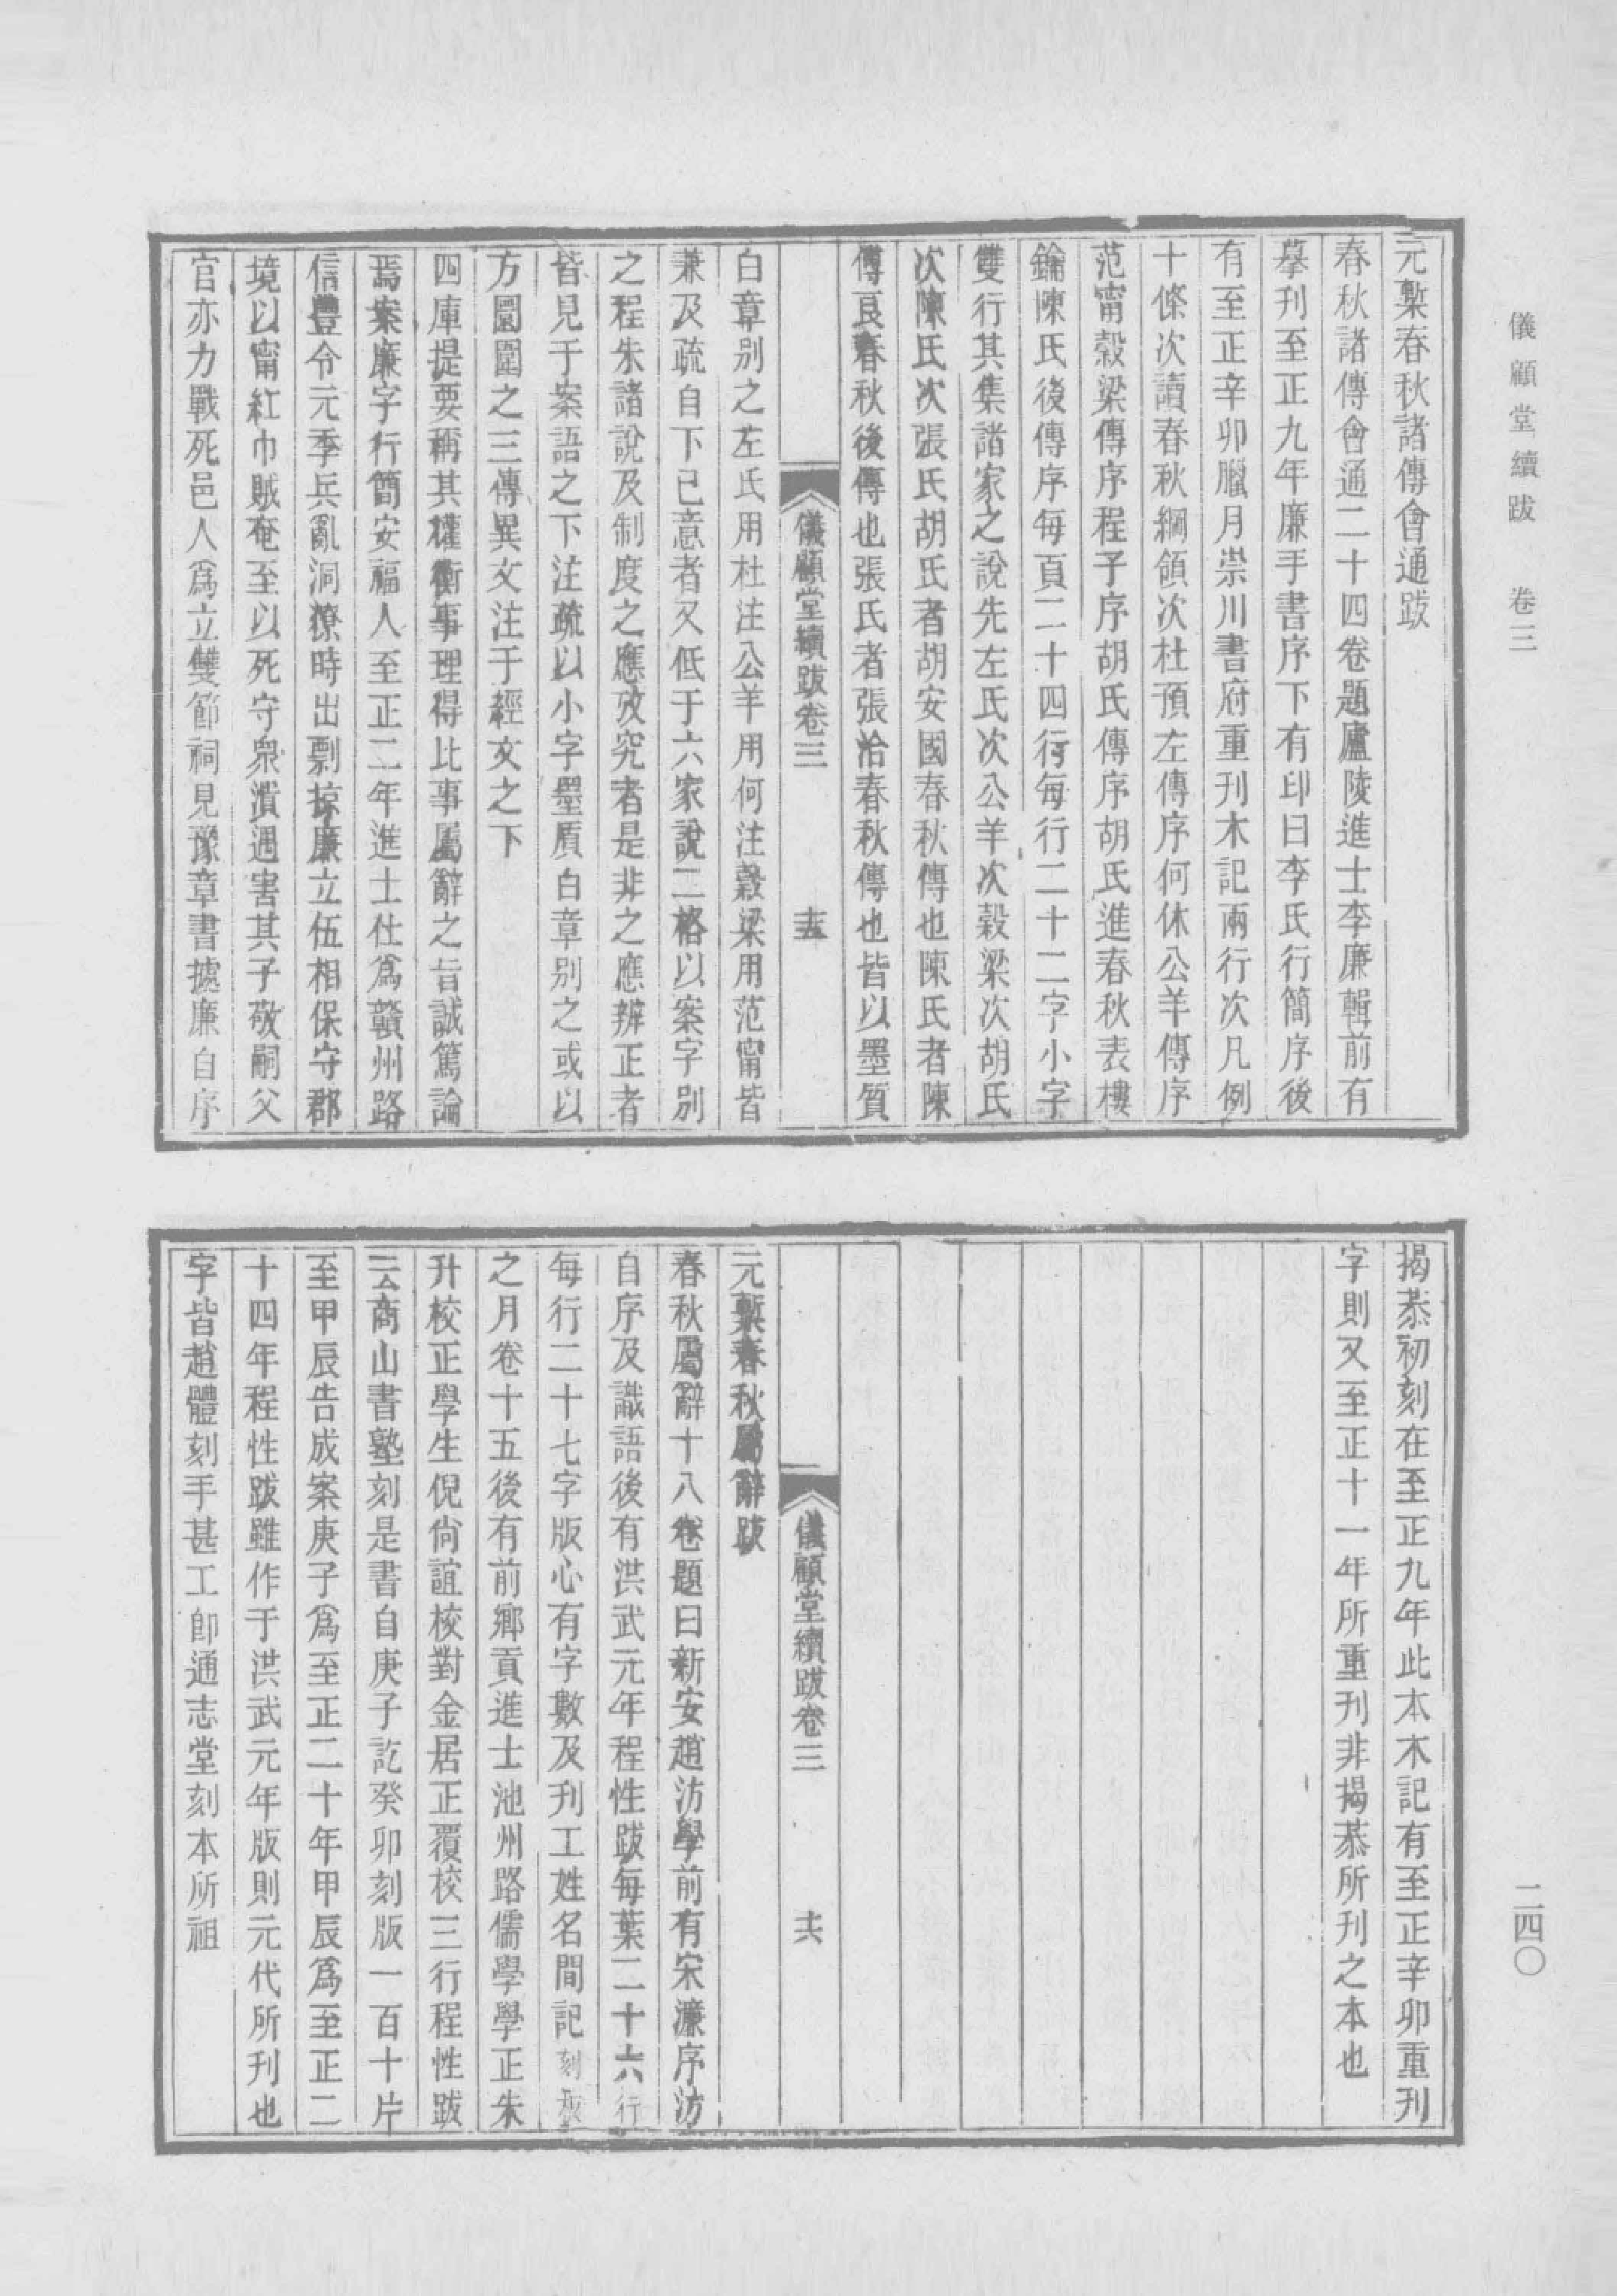 儀顧堂續跋　卷三
元槧春秋諸傳會通跋
春秋諸傳會通二十四卷題廬陵進士李廉輯前有
摹刊至正九年廉手書序下有印曰李氏行簡序後
有至正辛卯臘月崇川書府重刊木記兩行次凡例
十條次讀春秋綱領次杜預左傳序何休公羊傳序
范甯穀梁傳序程子序胡氏傳序胡氏進春秋表樓
鑰陳氏後傳序每頁二十四行每行二十二字小字
雙行其集諸家之說先左氏次公羊次穀梁次胡氏
次陳氏次張氏胡氏者胡安國春秋傳也陳氏者陳
傅良春秋後傳也張氏者張洽春秋傳也皆以墨質
儀顧堂續跋卷三　十五
白章别之左氏用杜注公羊用何注穀梁用范甯皆
兼及疏自下已意者又低于六家說二格以案字别
之程朱諸說及制度之應攷究者是非之應辨正者
皆見于案語之下注疏以小字墨質白章别之或以
方圍圍之三傳異文注于經文之下
四庫提要稱其權衡事理得比事屬辭之旨誠篤論
焉案廉字行簡安福人至正二年進士仕爲贛州路
信豐令元季兵亂洞獠時出剽掠廉立伍相保守郡
境以甯紅巾賊奄至以死守衆潰遇害其子敬嗣父
官亦力戰死邑人爲立雙節祠見豫章書據廉自序
揭恭初刻在至正九年此本木記有至正辛卯重刊
字則又至正十一年所重刊非揭恭所刊之本也
儀顧堂續跋卷三　十六
元槧春秋屬辭跋
春秋屬辭十八卷題曰新安趙汸學前有宋濂序汸
自序及識語後有洪武元年程性跋每葉二十六行
每行二十七字版心有字數及刊工姓名間記刻版
之月卷十五後有前鄉貢進士池州路儒學學正朱
升校正學生倪尙誼校對金居正覆校三行程性跋
云商山書塾刻是書自庚子訖癸卯刻版一百十片
至甲辰告成案庚子爲至正二十年甲辰爲至正二
十四年程性跋雖作于洪武元年版則元代所刊也
字皆趙體刻手甚工卽通志堂刻本所祖
二四〇